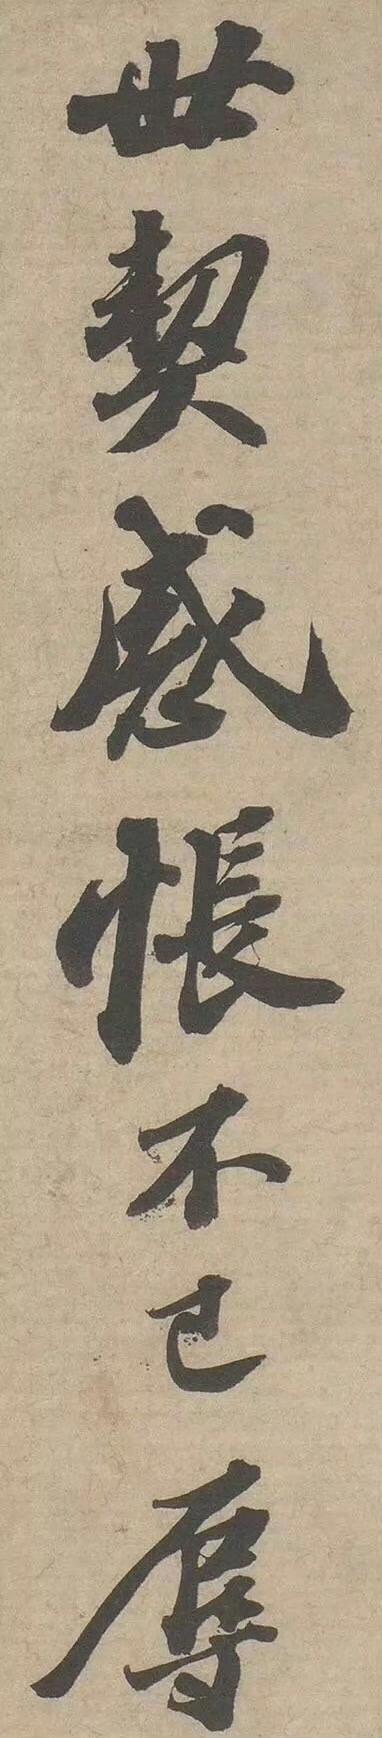 世契感悵不已辱